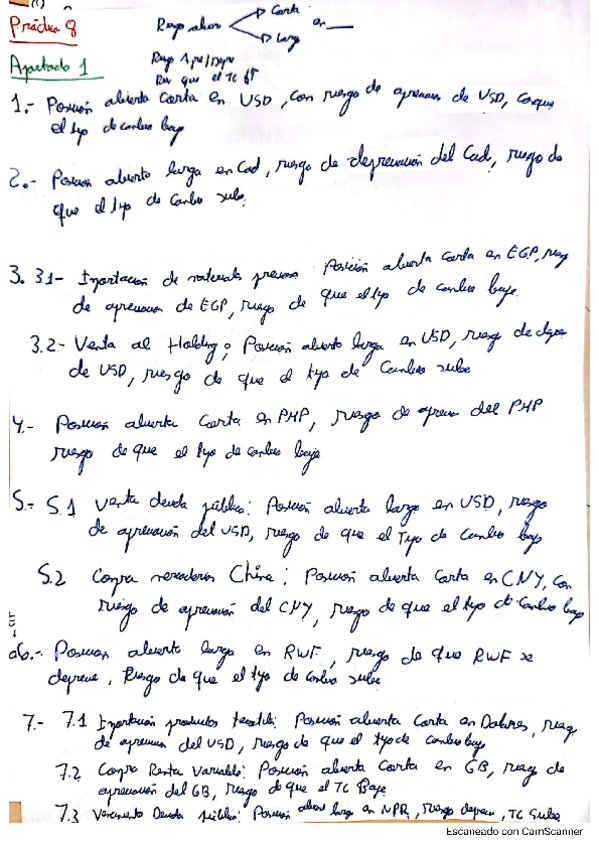 Práctica 8
Riesgo abierta Corta en
Larg
Apartado 1
Riesgo Apre/Depre
que el TC
1.- Posición abierta Corta en USD, con riesgo de apreciación de USD, con que
el tipo de cambio baje
2.- Posición abierta larga en Cad, riesgo de depreciación del Cad, riesgo de
que el tipo de Cambio sube.
3. 3.1- Importación de materiales Posición abierta Corta en EGP, riesg
de apreciación de EGP, riesgo de que el tipo de cambio baje.
3.2- Venta al Holding; Posición abierta larga en USD, riesgo de depre
de USD, riesgo de que el tipo de Cambio sube
4.- Posición abierta Corta en PHP, riesgo de aprecia del PHP
riesgo de que el tipo de cambio baje
5.- 5.1 Venta deuda pública: Posición abierta larga en USD, riesgo
de apreciación del USD, riesgo de que el Tipo de Cambio baje
5.2 Compra mercaderías China; Posición abierta Corta en CNY, con
riesgo de apreciación del CNY, riesgo de que el tipo de Cambio baje
6.- Posición abierta larga en RWF, riesgo de que RWF se
deprecie, Riesgo de que el tipo de cambio sube
7.- 7.1 Importación productos textil: Posición abierta Corta en Dolares, riesg
de apreciación del USD, riesgo de que el tipo de cambio baje
7.2 Compra Renta Variable: Posición abierta Corta en GB, riesg de
apreciación del GB, riesgo de que el TC Baje
7.3 Vencimiento Deuda pública: Posición abiert larga en NPR, riesgo deprec, TC Sube
Escaneado con CamScanner